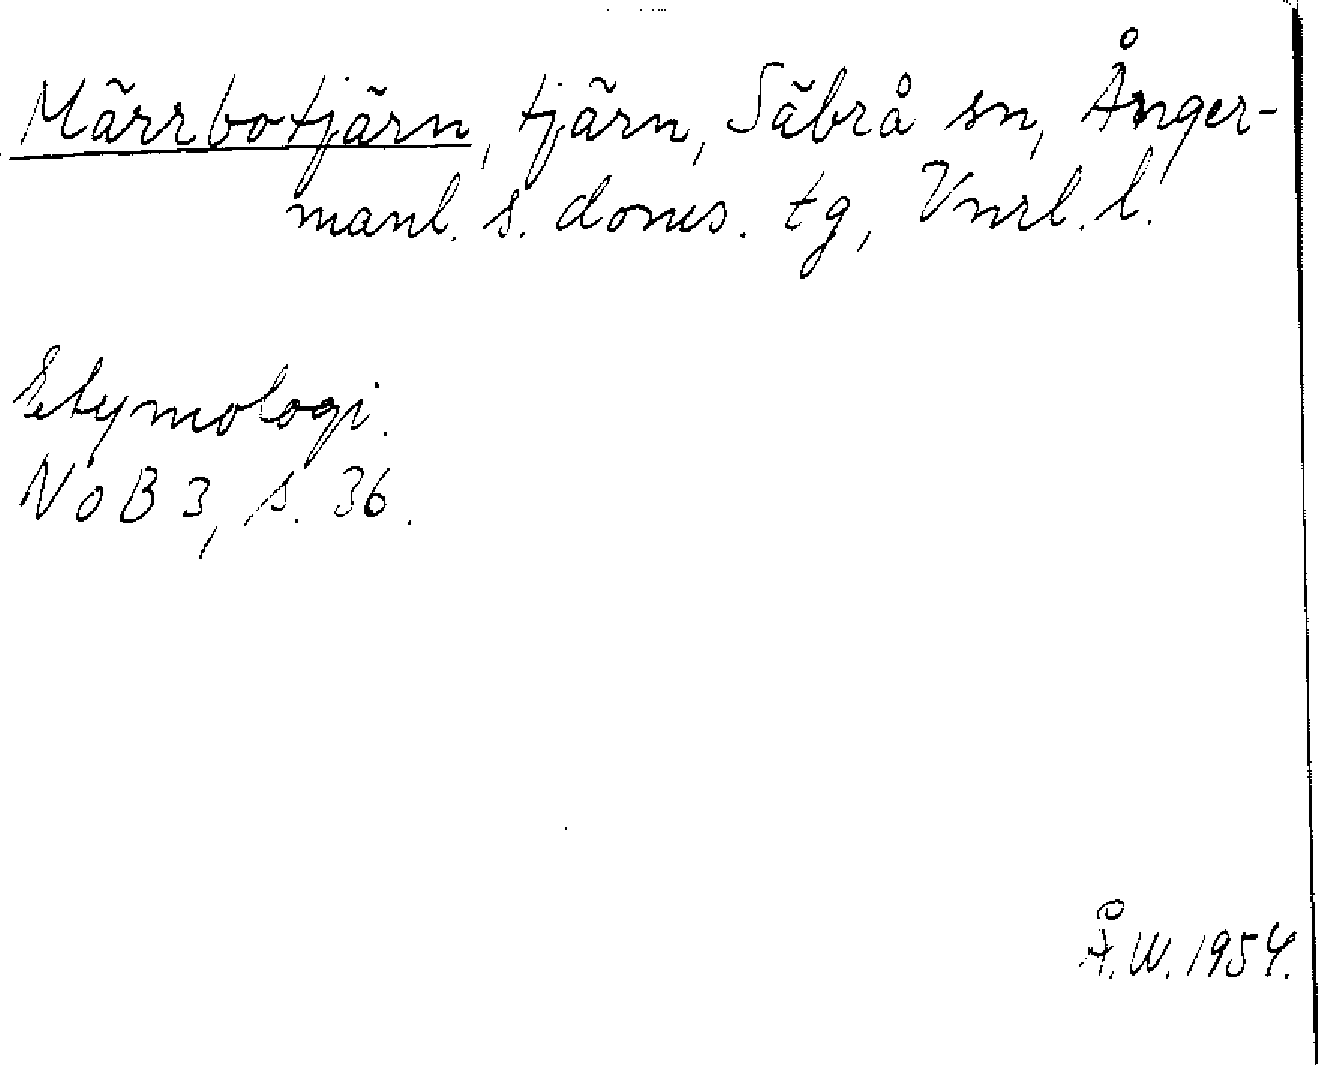 Märrbotjärn, tjärn, Säbrå sn, Ånger-
manl. s. doms. tg, Vnrl. l.
Etymologi.
NoB 3, s. 36.
Å.W. 1954.